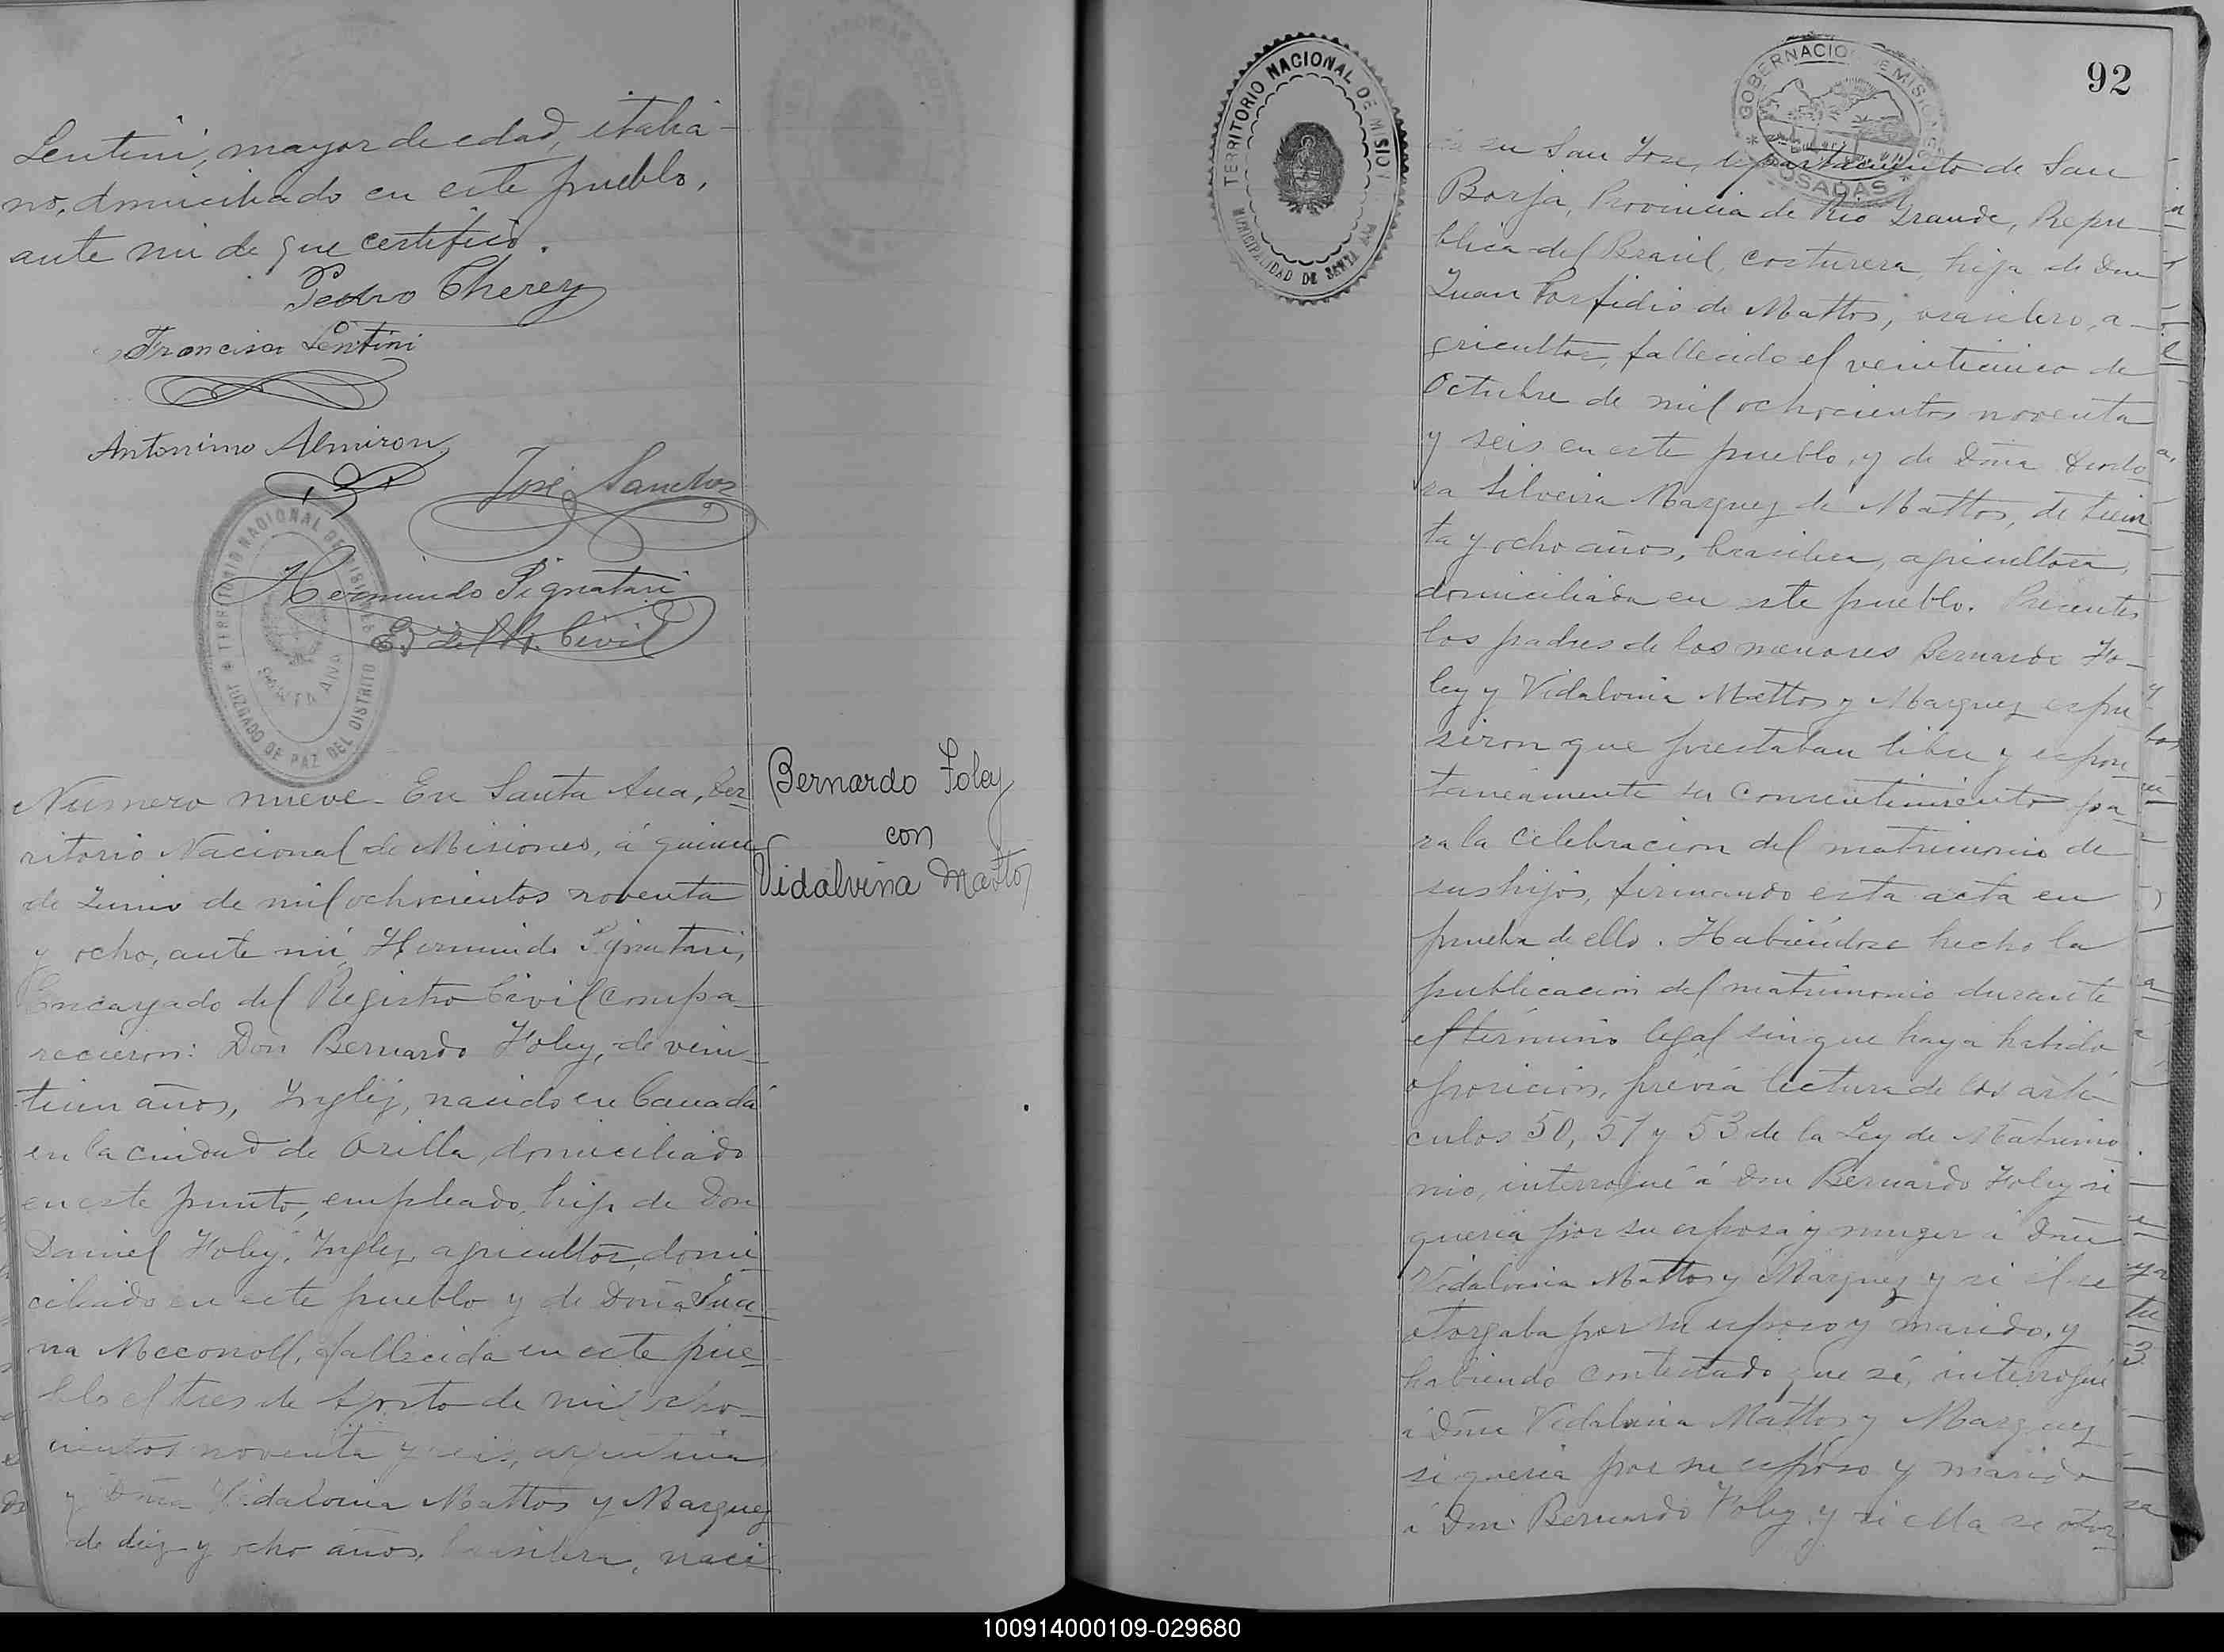 Lentini, mayor de edad, italia-
no, domiciliado en este pueblo,
ante mi de que certifico.
Pedro Cherey
Francisco Lentini
Antonimo Almiron
José Sanchez
Hermindo Pignatari
E. del R. Civil
TERRITORIO NACIONAL DE MISIONES
SANTA ANA
JUZGADO DE PAZ DEL DISTRITO
Número nueve. En Santa Ana, Ter-
ritorio Nacional de Misiones, á quince
de Junio de mil ochocientos noventa
y ocho, ante mí, Hermindo Pignatari,
Encargado del Registro Civil compa-
recieron: Don Bernardo Foley, de vein-
tiun años, Inglez, nacido en Canadá
en la ciudad de Orilla, domiciliado
en este punto, empleado, hijo de Don
Daniel Foley, Inglez, agricultor, domi-
ciliado en este pueblo y de Doña Jua-
na Meconoll, fallecida en este pue-
blo el tres de Agosto de mil ocho-
cientos noventa y seis, argentina,
y Dña Vidalvina Mattos y Marquez
de diez y ocho años, brasilera, naci-
Bernardo Foley
con
Vidalvina Mattos
TERRITORIO NACIONAL DE MISIONES
MUNICIPALIDAD DE SANTA
GOBERNACION DE MISIONES
POSADAS
92
en San José, departamento de San
Borja, Provincia de Rio Grande, Repu-
blica del Brasil, costurera, hija de Don
Juan Porfidio de Mattos, brasilero, a-
gricultor, fallecido el veinticinco de
Octubre de mil ochocientos noventa
y seis en este pueblo, y de Dña
Silveira Marquez de Mattos, de trein-
ta y ocho años, brasilera, agricultora,
domiciliada en este pueblo. Presentes
los padres de los menores Bernardo Fo-
ley y Vidalvina Mattos y Marquez espu-
sieron que prestaban libre y espon-
taneamente su consentimiento pa-
ra la celebracion del matrimonio de
sus hijos, firmando esta acta en
prueba de ello. Habiéndose hecho la
publicacion del matrimonio durante
el término legal sin que haya habido
oposicion, previa lectura de los artí-
culos 50, 51 y 53 de la Ley de Matrimo-
nio, interrogué á Don Bernardo Foley si
queria por su esposa y muger á Dña
Vidalvina Mattos y Marquez y si él se
otorgaba por su esposo y marido, y
habiendo contestado que sí, interrogué
á Dña Vidalvina Mattos y Marquez
si queria por su esposo y marido
á Don Bernardo Foley y si ella se otor-
100914000109-029680